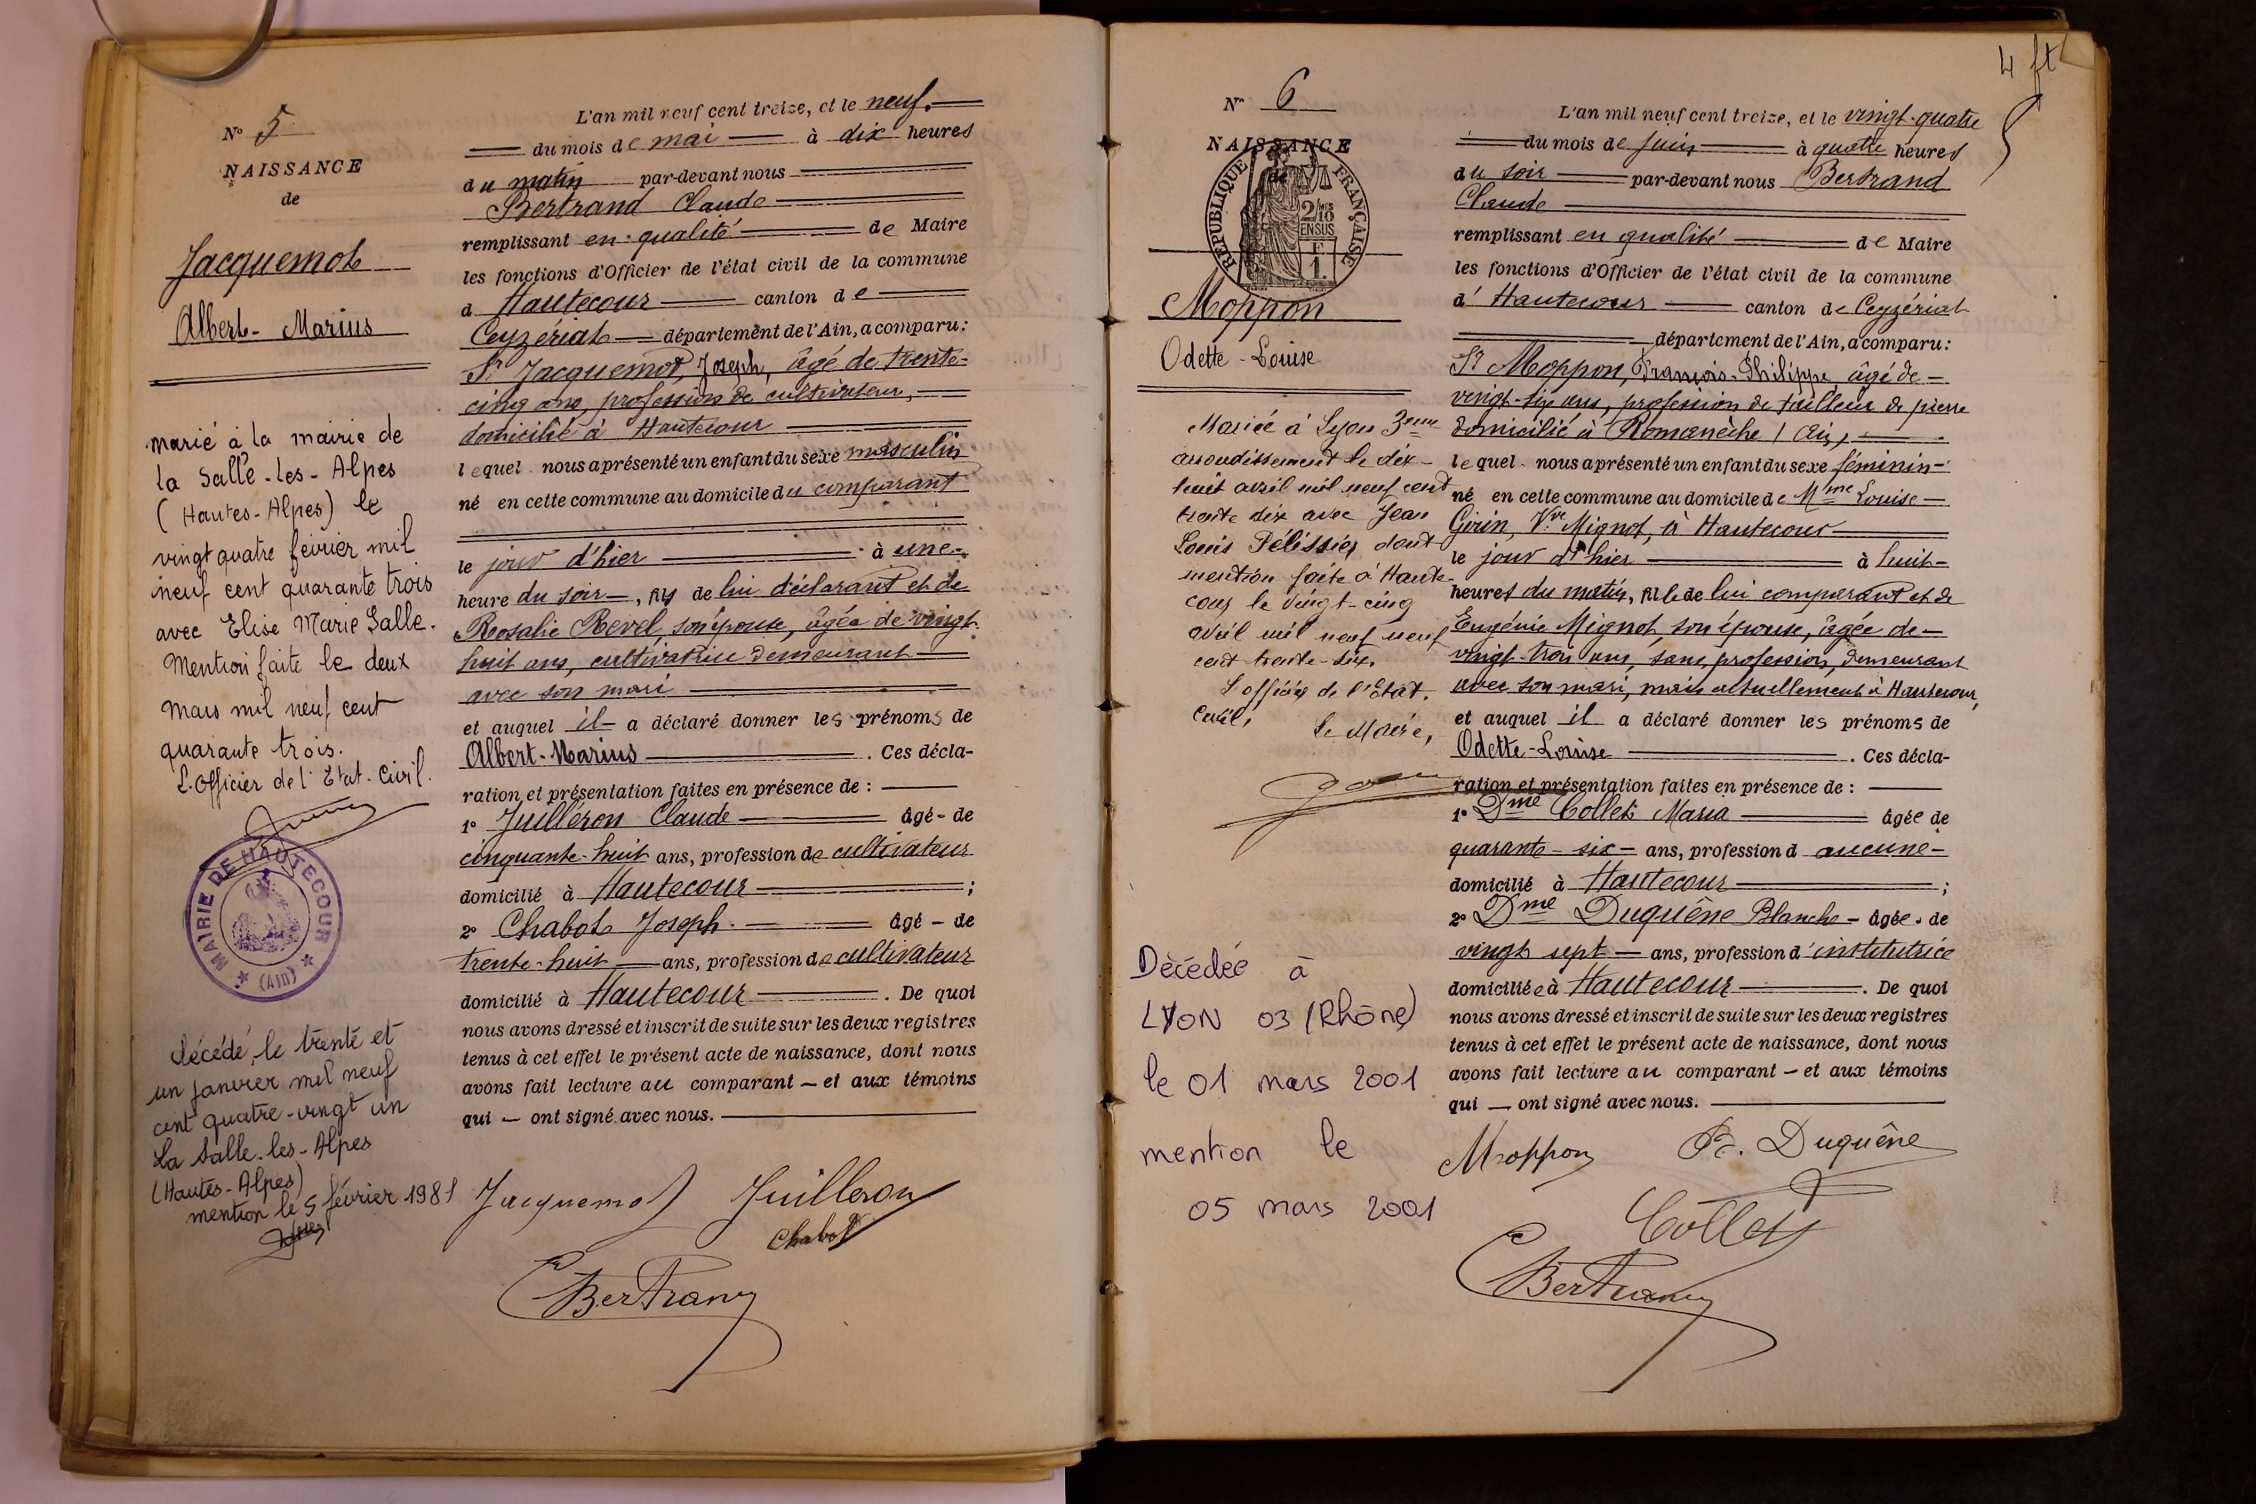 N° 5
NAISSANCE
de
Jacquemot
Albert - Marius
marié à la mairie de
la Salle-les-Alpes
(Hautes-Alpes) le
vingt quatre février mil
neuf cent quarante trois
avec Elise Marie Salle.
Mention faite le deux
mars mil neuf cent
quarante trois.
L'Officier de l'Etat-Civil.
MAIRIE DE HAUTECOUR
* (Ain) *
décédé le trente et
un janvier mil neuf
cent quatre-vingt un
La Salle-les-Alpes
(Hautes-Alpes)
mention le 5 février 1981
L'an mil neuf cent treize, et le neuf.
du mois de mai à dix heures
du matin par-devant nous
Bertrand Claude
remplissant en qualité de Maire
les fonctions d'Officier de l'état civil de la commune
d Hautecour canton de
Ceyzériat département de l'Ain, a comparu:
Sr Jacquemot, Joseph, âgé de trente-
cinq ans, profession de cultivateur,
domicilié à Hautecour
lequel nous a présenté un enfant du sexe masculin
né en cette commune au domicile du comparant
le jour d'hier à une
heure du soir, fils de lui déclarant et de
Rosalie Revel, son épouse, âgée de vingt-
huit ans, cultivatrice demeurant
avec son mari
et auquel il a déclaré donner les prénoms de
Albert-Marius. Ces décla-
ration et présentation faites en présence de :
1° Juilléron Claude âgé de
cinquante-huit ans, profession de cultivateur
domicilié à Hautecour ;
2° Chabot Joseph âgé de
trente-huit ans, profession de cultivateur
domicilié à Hautecour. De quoi
nous avons dressé et inscrit de suite sur les deux registres
tenus à cet effet le présent acte de naissance, dont nous
avons fait lecture au comparant et aux témoins
qui ont signé avec nous.
Jacquemot Juilleron
Chabot
Bertrand
4 ft
N° 6
NAISSANCE
de
RÉPUBLIQUE FRANÇAISE
2/10
EN SUS
F
1.
Moppon
Odette - Louise
Mariée à Lyon 3eme
arrondissement le dix-
huit avril mil neuf cent
trente six avec Jean
Louis Pélissier dont
mention faite à Haute-
cour le vingt-cinq
avril mil neuf neuf
cent trente-six.
L'officier de l'Etat.
Civil,
Le Maire,
Décédée à
LYON 03 (Rhône)
le 01 mars 2001
mention le
05 mars 2001
L'an mil neuf cent treize, et le vingt-quatre
du mois de juin à quatre heures
du soir par-devant nous Bertrand
Claude
remplissant en qualité de Maire
les fonctions d'Officier de l'état civil de la commune
d'Hautecour canton de Ceyzériat
département de l'Ain, a comparu:
Sr Moppon, François-Philippe, âgé de
vingt-six ans, profession de tailleur de pierre
domicilié à Romanèche (Ain)
lequel nous a présenté un enfant du sexe féminin
né en cette commune au domicile de Mme Louise
Girin, Vve Mignot, à Hautecour
le jour d'hier à huit
heures du matin, fille de lui comparant et de
Eugénie Mignot, son épouse, âgée de
vingt-trois ans, sans profession, demeurant
avec son mari, mais actuellement à Hautecour,
et auquel il a déclaré donner les prénoms de
Odette-Louise. Ces décla-
ration et présentation faites en présence de :
1° Dme Collet Maria âgée de
quarante-six ans, profession d aucune
domicilié à Hautecour ;
2° Dme Duquêne Blanche âgée de
vingt sept ans, profession d'institutrice
domiciliée à Hautecour. De quoi
nous avons dressé et inscrit de suite sur les deux registres
tenus à cet effet le présent acte de naissance, dont nous
avons fait lecture au comparant et aux témoins
qui ont signé avec nous.
Moppon B. Duquêne
Collet
Bertrand